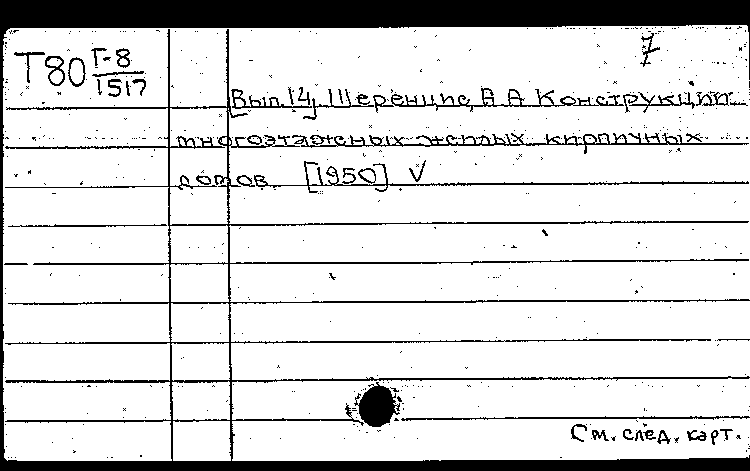 7
Т80 Г-8
1517
[Вып. 14] Шеренцис, А А Конструкции
многоэтажных жилых кирпичных
домов. [1950] V
См. след. карт.